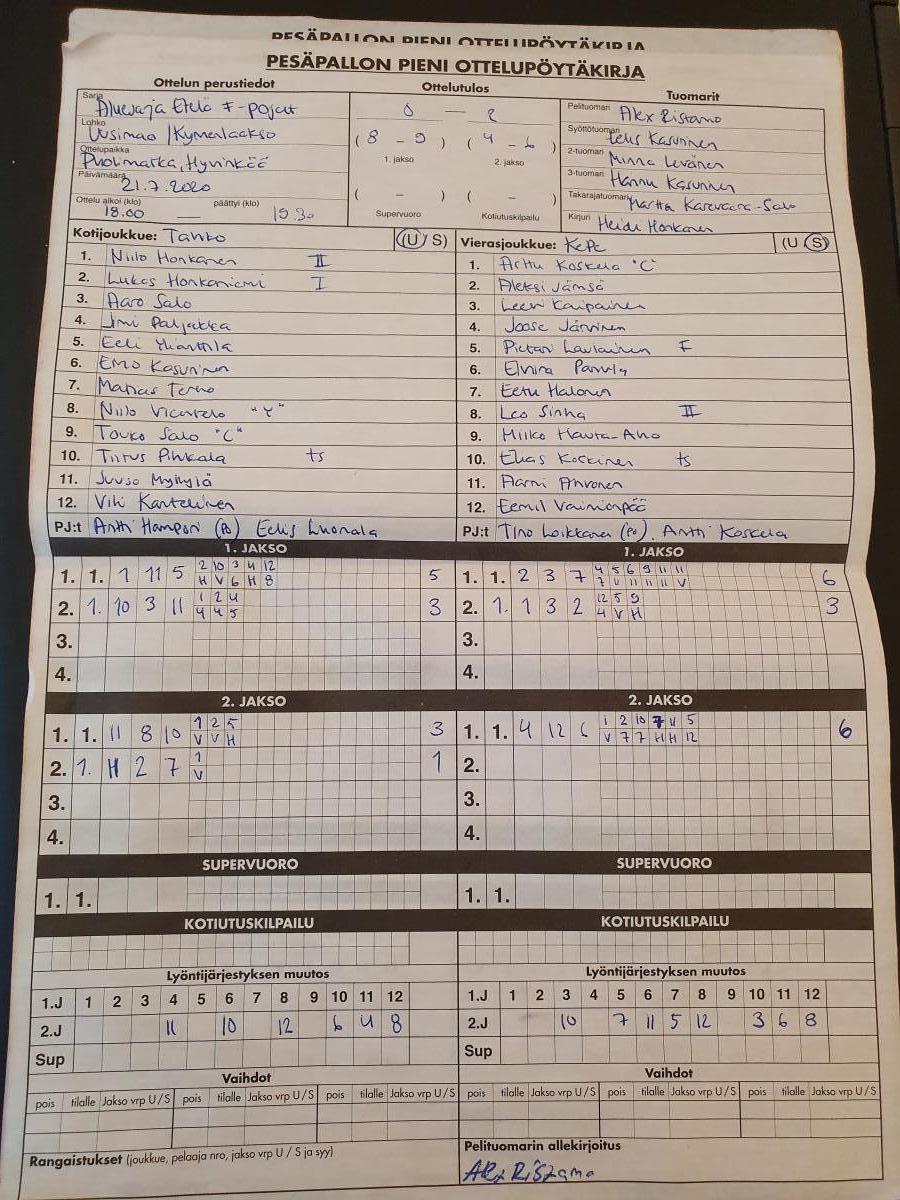 PESÄPALLON PIENI OTTELUPÖYTÄKIRJA
PESÄPALLON PIENI OTTELUPÖYTÄKIRJA
Ottelun perustiedot Ottelutulos Tuomarit
Sarja Aluesarja Etelä F-pojat
0 — 2
Pelituomari Alex Ristamo
Lohko Uusimaa / Kymenlaakso
(8 - 9) (4 - 6)
1. jakso 2. jakso
Syöttötuomari Kasurinen
Ottelupaikka Puolimatka, Hyvinkää
2-tuomari Minna Levänen
Päivämäärä 21.7.2020
( - ) ( - )
3-tuomari Hannu Kasurinen
Ottelu alkoi (klo) 18.00 — päättyi (klo) 19.30
Supervuoro Kotiutuskilpailu
Takarajatuomari Martta
Kirjuri Heidi Honkanen
Kotijoukkue: Tahko (U / S)
1. Niilo Honkanen II
2. Lukas Honkaniemi I
3. Aaro Salo
4. Jimi Paljakka
5. Eeli
6. Eino Kasurinen
7. Matias
8. Niilo "Y"
9. Touko Salo "C"
10. Tiitus Pihkala ts
11. Juuso Myllyjä
12. Vili Kantelinen
PJ:t Antti (Po)
Vierasjoukkue: KePe (U / S)
1. Arttu Koskela "C"
2. Aleksi Jämsä
3. Leevi Kaipainen
4. Joose Järvinen
5. Pietari Laulainen
6. Elmira
7. Eetu Halonen
8. Leo Sinha II
9. Miiko Hauta-Aho
10. Elias Koskinen ts
11. Aarni Ahvonen
12. Eemil Vainionpää
PJ:t Tino Loikkanen (Po), Antti Koskela
1. JAKSO
1. 1. 1 11 5 2 10 3 4 12 5
H V 6 H 8
2. 1. 10 3 11 1 2 4 3
4 4 5
3.
4.
1. JAKSO
1. 1. 2 3 7 4 5 6 9 11 11 6
7 11 11 11 11 V
2. 1. 1 3 2 12 5 9 3
4 V H
3.
4.
2. JAKSO
1. 1. 11 8 10 1 2 5 3
V V H
2. 1. H 2 7 1 1
V
3.
4.
2. JAKSO
1. 1. 4 12 6 1 2 10 7 4 5 6
V 7 7 H H 12
2.
3.
4.
SUPERVUORO
1. 1.
SUPERVUORO
1. 1.
KOTIUTUSKILPAILU
KOTIUTUSKILPAILU
Lyöntijärjestyksen muutos
1.J 1 2 3 4 5 6 7 8 9 10 11 12
2.J 11 10 12 6 4 8
Sup
Lyöntijärjestyksen muutos
1.J 1 2 3 4 5 6 7 8 9 10 11 12
2.J 10 7 11 5 12 3 6 8
Sup
Vaihdot
pois tilalle Jakso vrp U / S pois tilalle Jakso vrp U / S pois tilalle Jakso vrp U / S
Vaihdot
pois tilalle Jakso vrp U / S pois tilalle Jakso vrp U / S pois tilalle Jakso vrp U / S
Rangaistukset (joukkue, pelaaja nro, jakso vrp U / S ja syy)
Pelituomarin allekirjoitus
Alex Ristamo